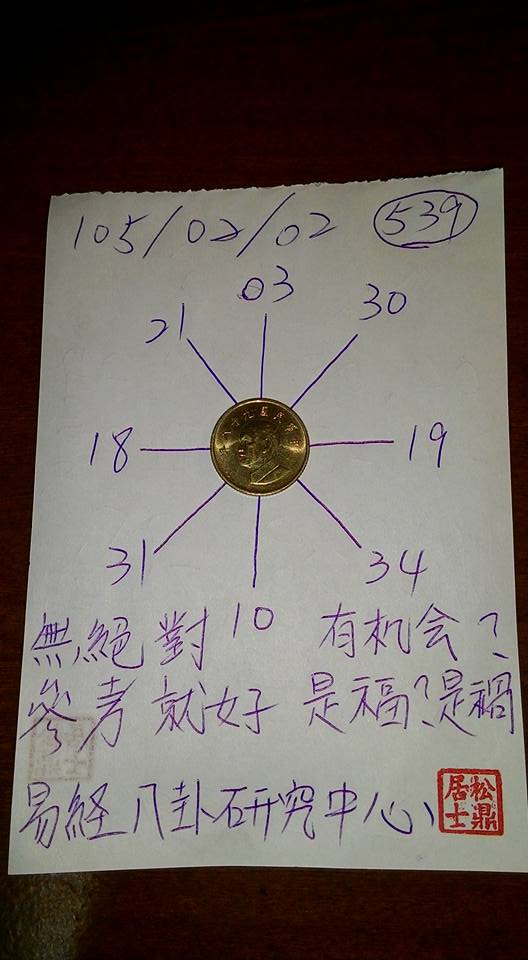 105/02/02 539
03
21 30
18 19
31 34
10
無絕對 有机会?
參考就好 是福?是禍
易経八卦研究中心
松鼎居士